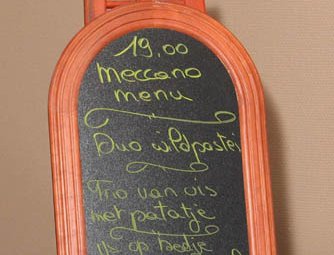 19,00
Meccano
menu
Duo wildpastei
Trio van vis
met patatje
Ijs op bedje